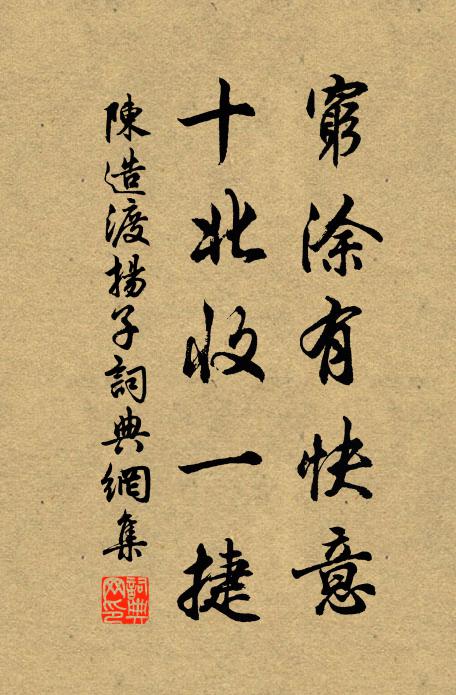 窮涂有快意
十北收一捷
陳造渡揚子詞典網集
詞典網印